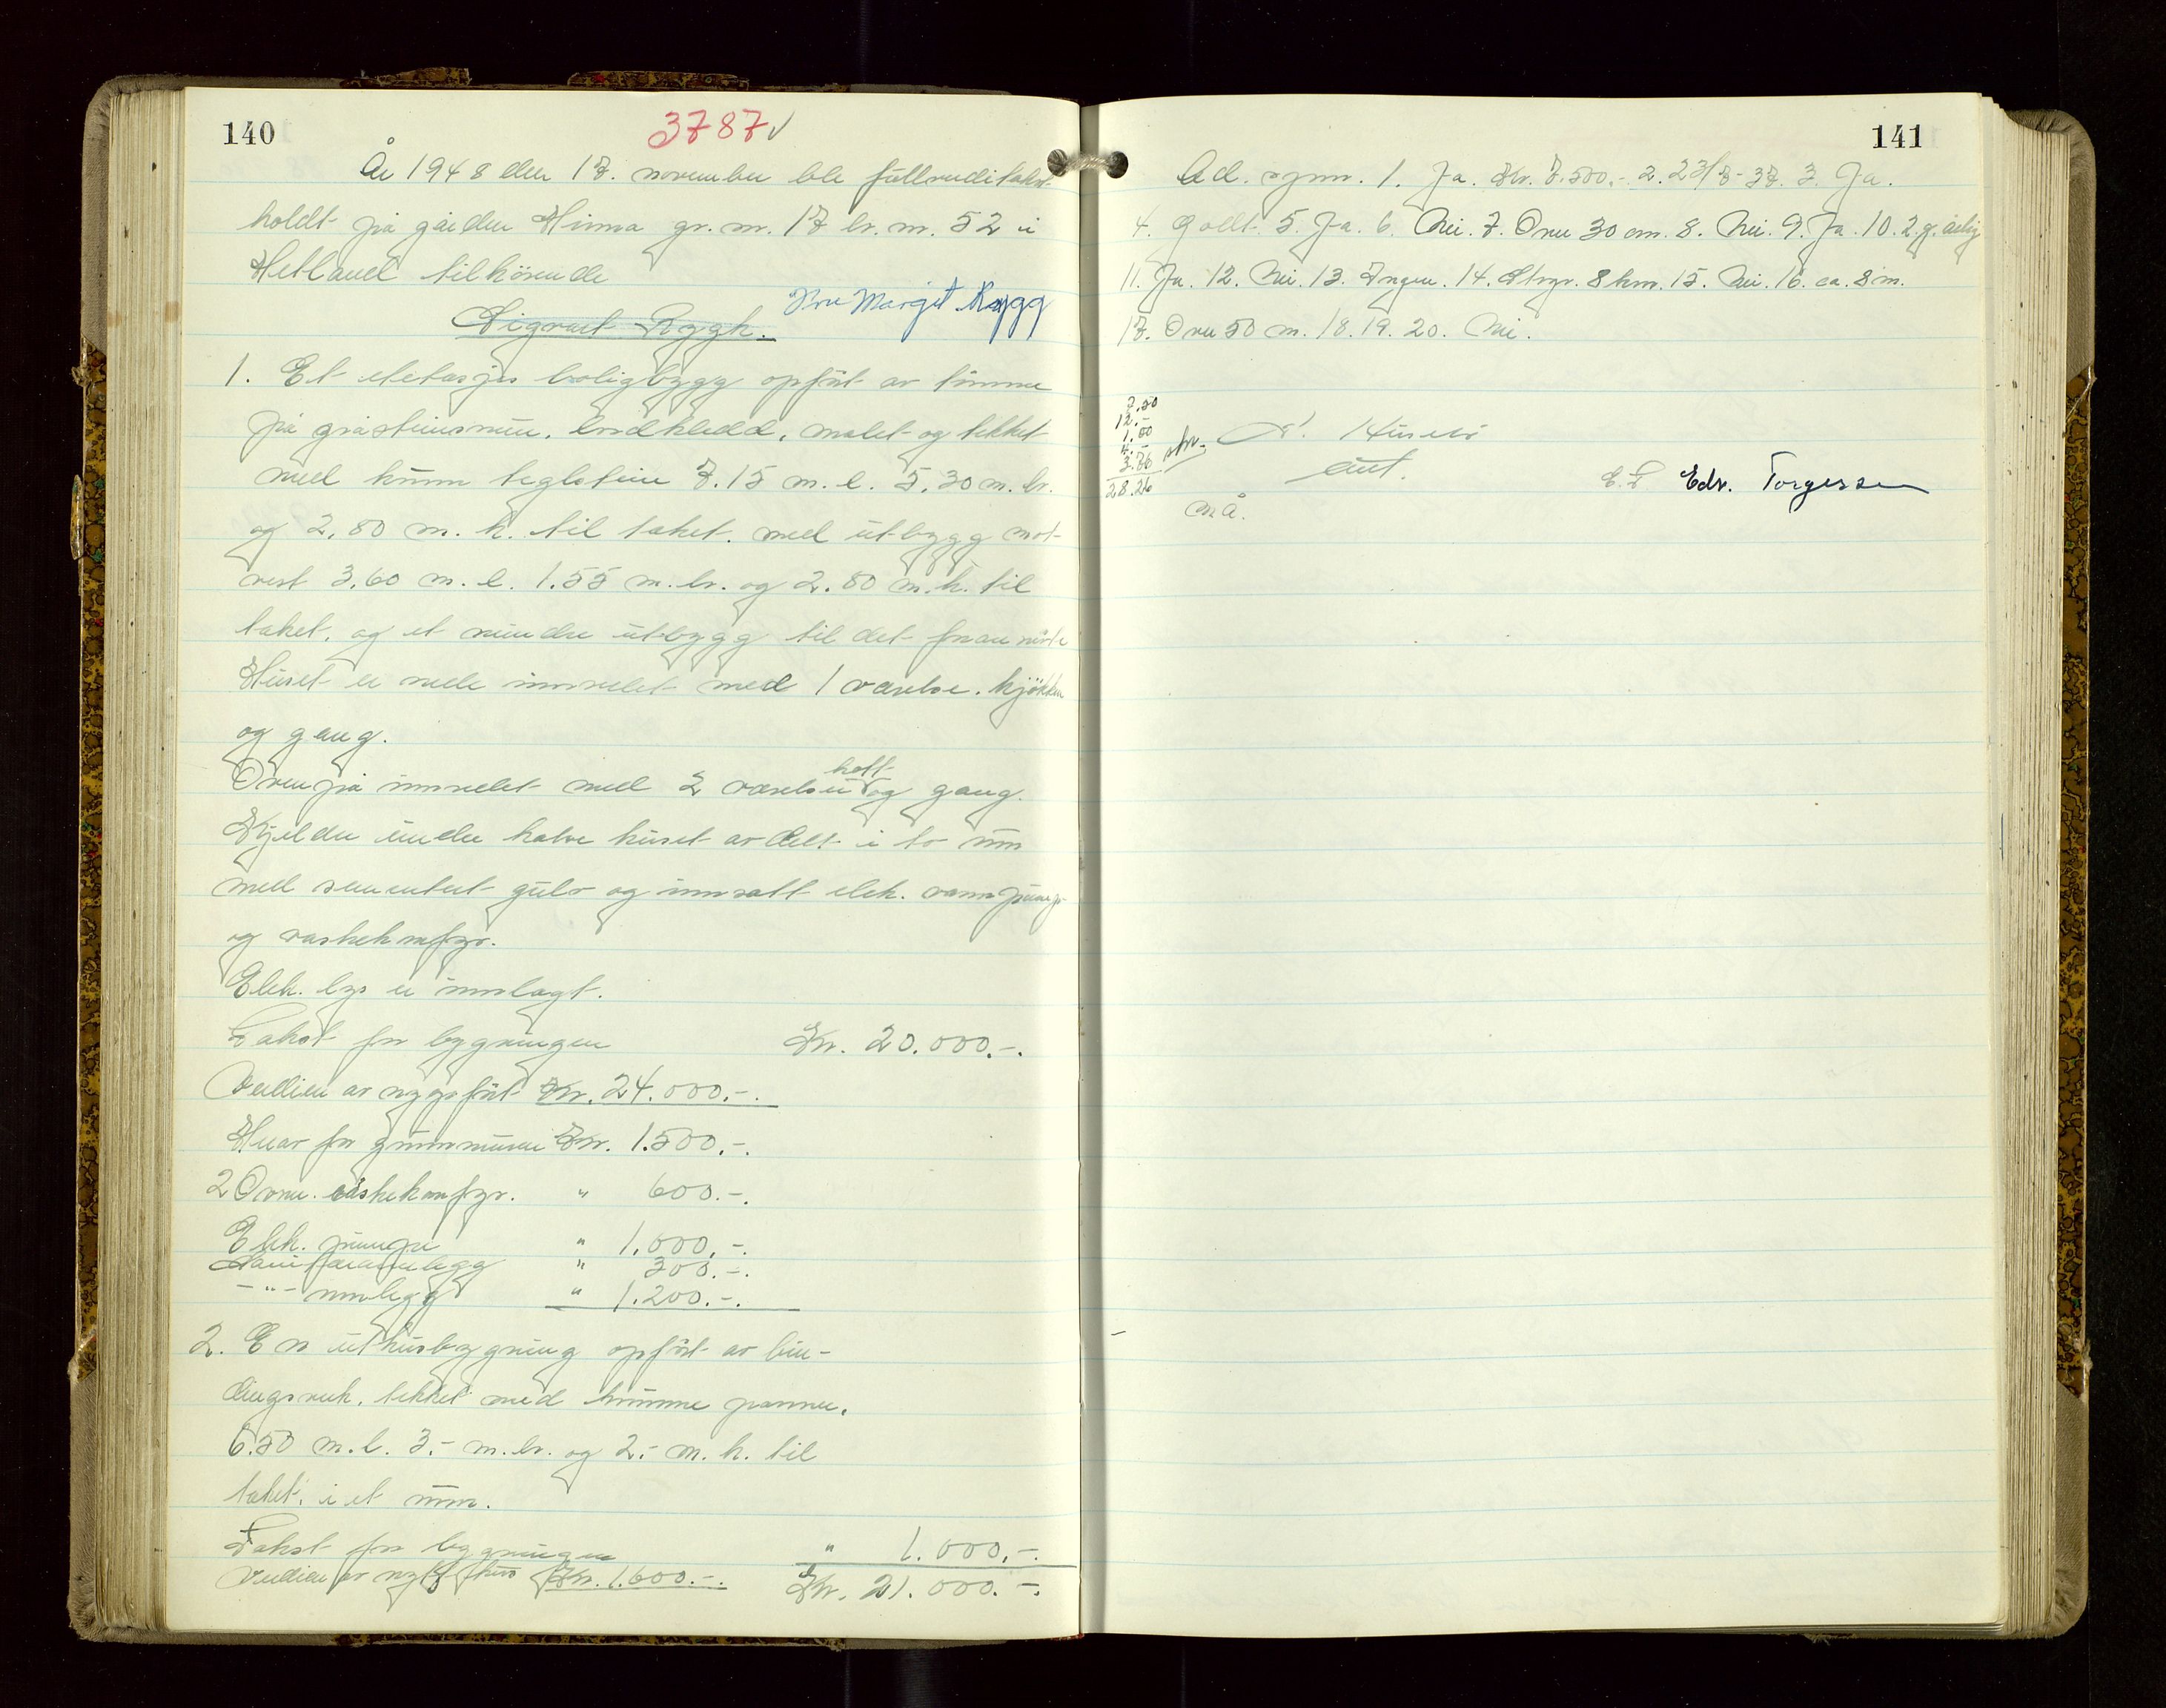 140
3787 ✓
År 1948 den 17. november ble fullverditakst
holdt på gården Hinna gr. nr. 17 br. nr. 52 i
Hetland tilhörende
Sigvart Rygh. Fru Margit Rygg
1. Et etetasjes boligbygg opfört av tömmer
på gråsteinsmur, bordkledd, malet og tekket
med krum teglsteine 7.15 m. l. 5.30 m. br.
og 2.80 m. h. til taket. med utbygg mot
vest 3.60 m. l. 1.55 m. br. og 2.80 m. h. til
taket, og et mindre utbygg til det foran nevnte
Huset er nede innredet med 1 værelse. kjökken
og gang.
Ovenpå innredet med 2 værelser kott og gang.
Kjelder under halve huset avdelt i to rum
med sementert gulv og innsatt elek. vannpumpe
og vaskekomfyr.
Elek. lys er innlagt.
Takst for bygningen Kr. 20.000.-.
Verdien av nyopfört Kr. 24.000.-.
Herav for grunnmuren Kr. 1.500.-.
2 Ovner. vaskekomfyr. " 600.-.
Elek. pumpe " 1.000.-.
" 300.-.
-"- innlegg " 1.200.-.
2. En uthusbygning opfört av bin-
dingsverk. tekket med krumme panner.
6.50 m. l. 3.- m. br. og 2.- m. h. til
taket. i et rum.
Takst for bygningen " 1.000.-.
Verdien av nytt hus Kr. 1.600.-. Kr. 21.000.-.
141
Ad. spm. 1. Ja. Kr. 7.500.- 2. 23/8-37. 3. Ja.
4. Godt. 5. Ja. 6. Nei. 7. Over 30 cm. 8. Nei. 9. Ja. 10. 2 g. årlig
11. Ja. 12. Nei. 13. Ingen. 14. Stvgr. 8 km. 15. Nei. 16. ca. 8 m.
17. Over 50 m. 18. 19. 20. Nei.
7.50
12.-
1.00
4.-
3.76
28.26
Husebö
E.T Edv. Torgersen
m å.